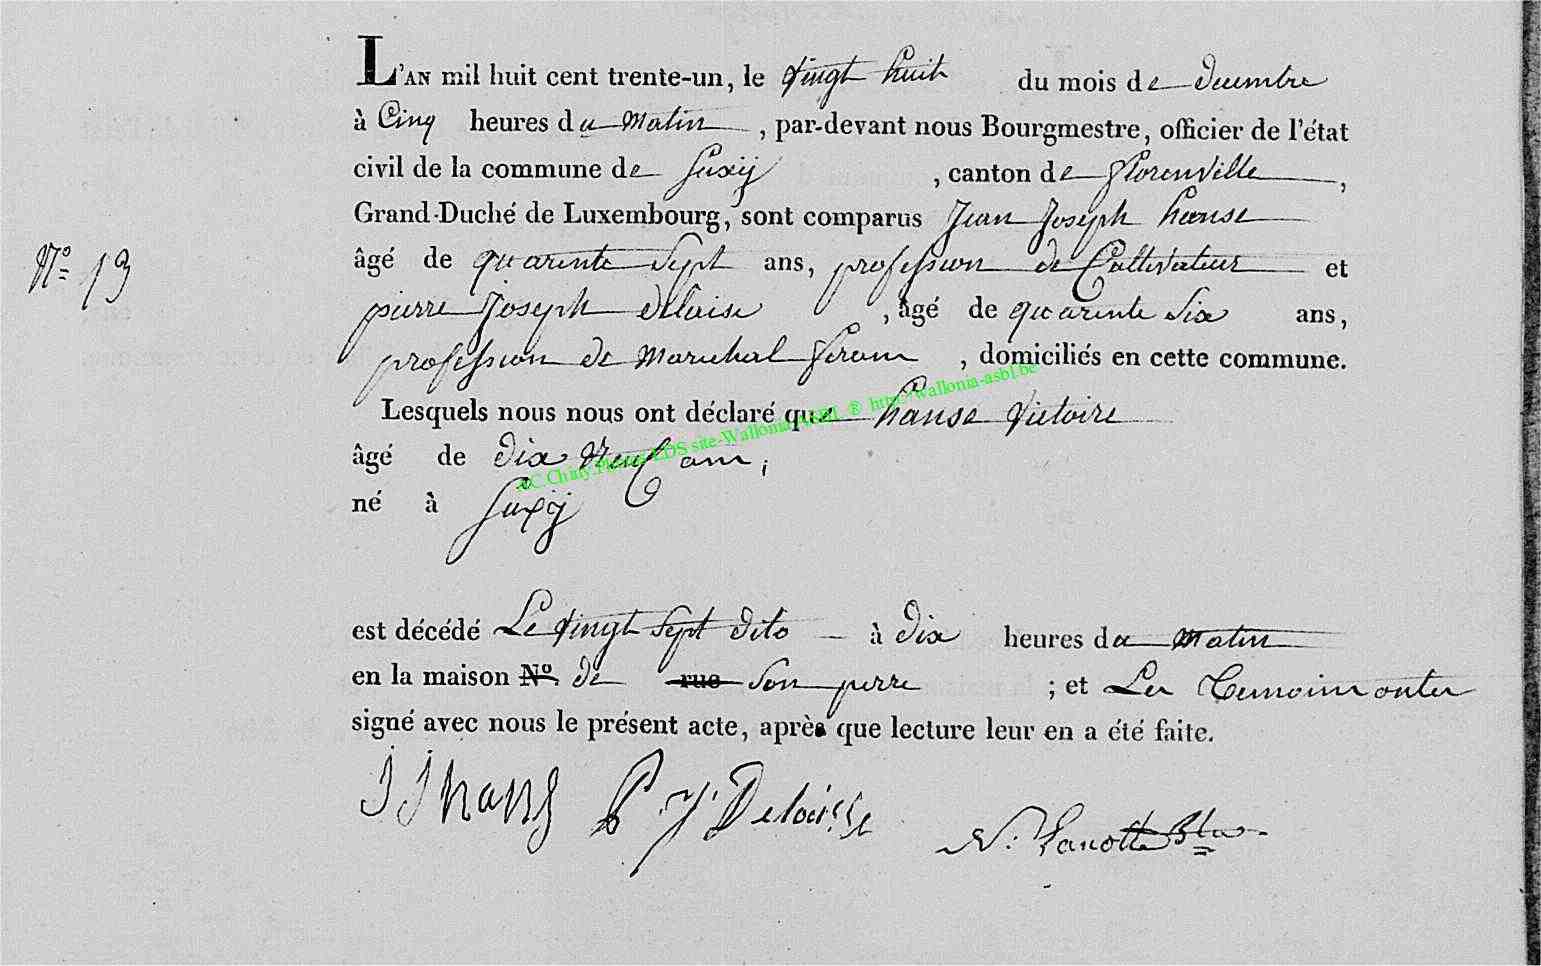 L'AN mil huit cent trente-un, le vingt huit du mois de decembre
à Cinq heures du matin, par-devant nous Bourgmestre, officier de l'état
civil de la commune de Suxÿ, canton de florenville,
Grand-Duché de Luxembourg, sont comparus Jean Joseph hanse
N° 13
âgé de quarente sept ans, profession de Cultivateur et
pierre Joseph deloise, âgé de quarente six ans,
profession de marechal feran, domiciliés en cette commune.
Lesquels nous nous ont déclaré que hanse victoire
âgé de dix neuf ans;
AC.Chiny.Photos LDS site-Wallonia ASBL ® http://wallonia-asbl.be
né à Suxÿ
est décédé Le vingt sept dito à dix heures du matin
en la maison N°. de rue son perre ; et Les temoins ontes
signé avec nous le présent acte, après que lecture leur en a été faite.
J J hans P. J. Deloisse N. Lanotte